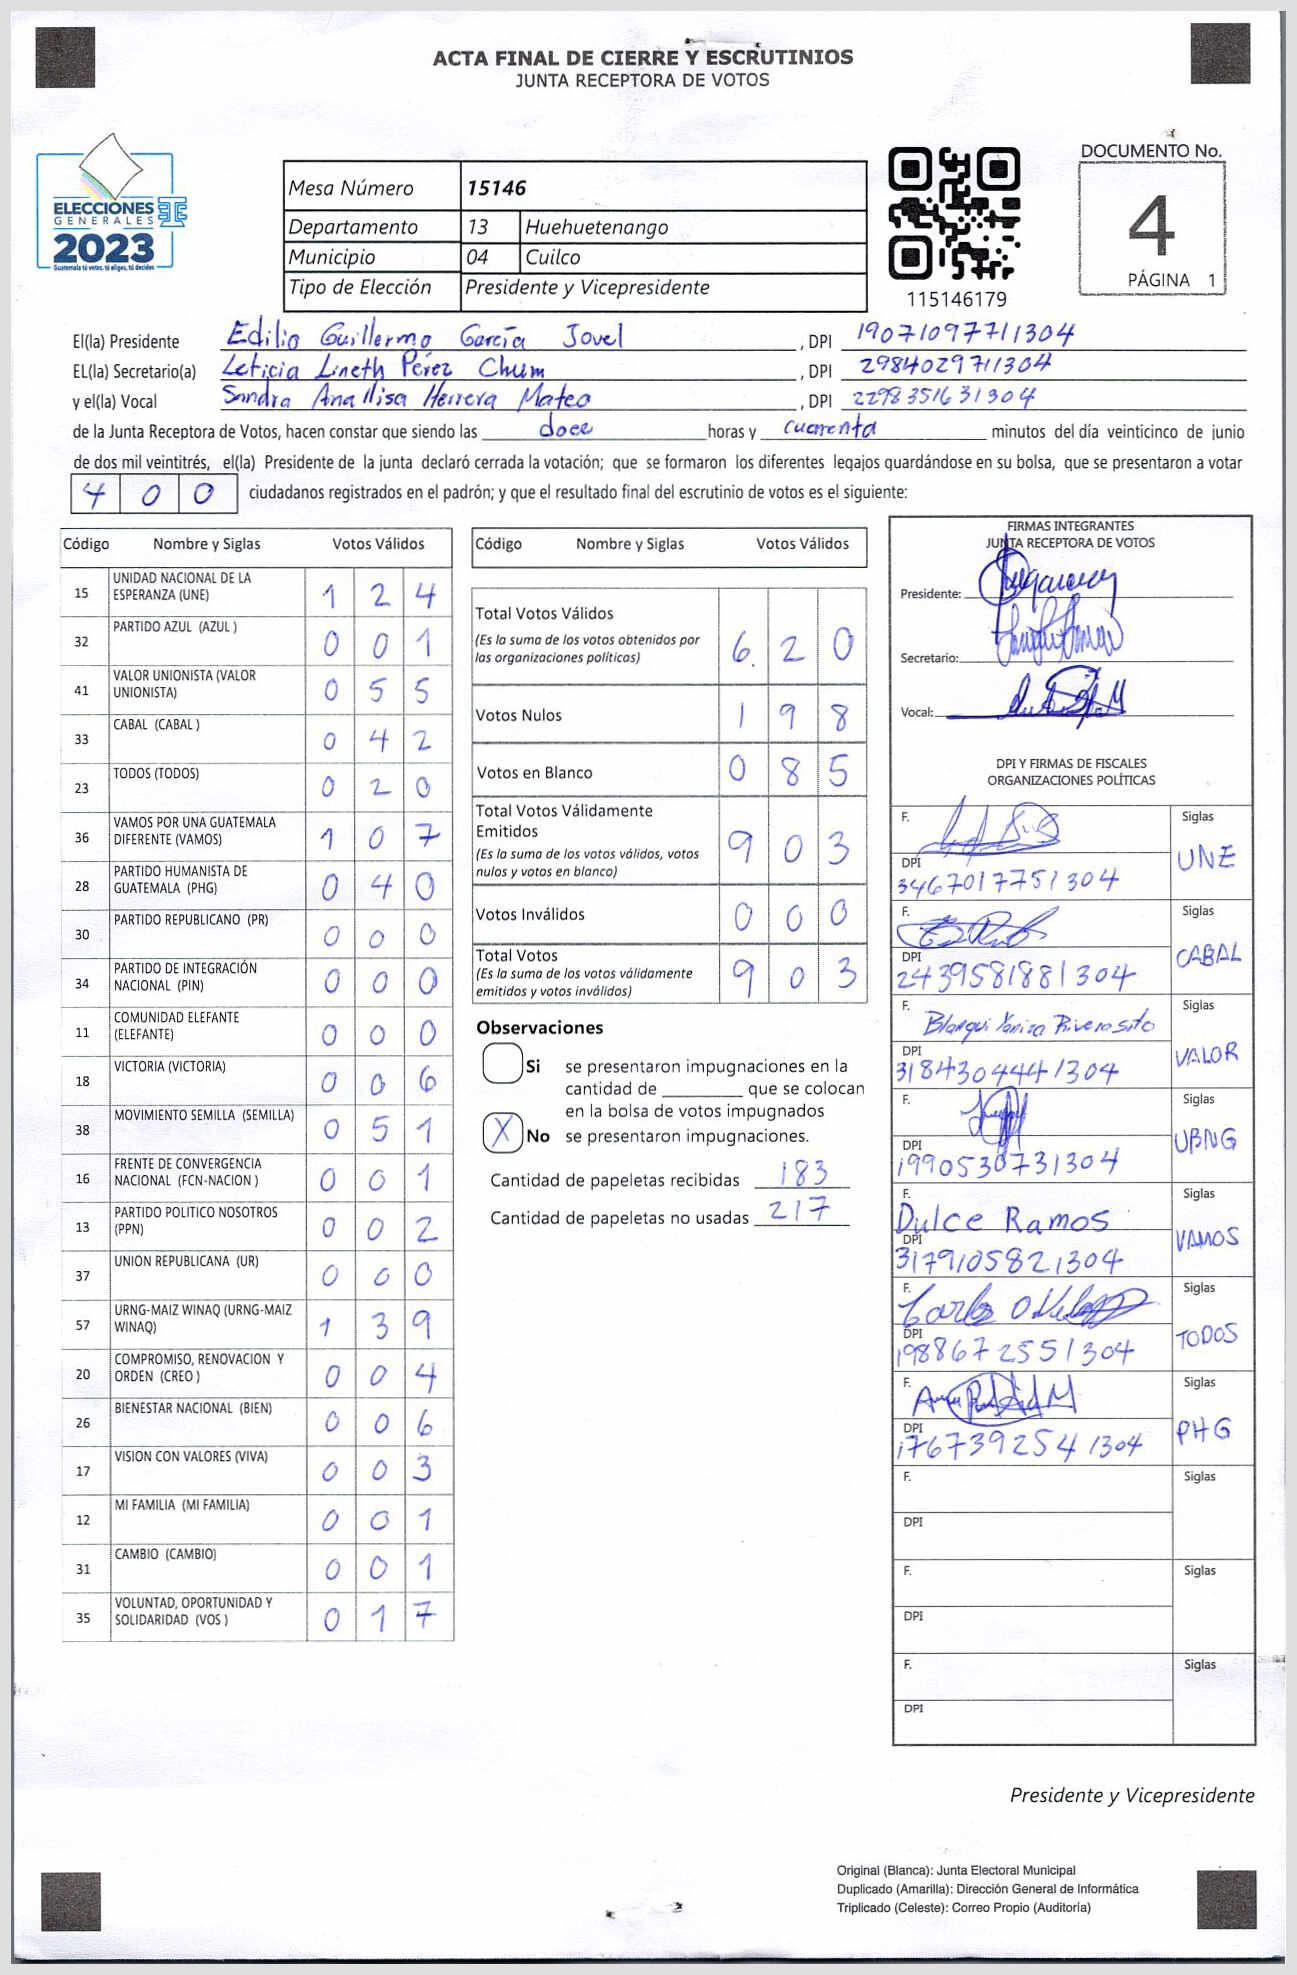 ACTA FINAL DE CIERRE Y ESCRUTINIOS
JUNTA RECEPTORA DE VOTOS
ELECCIONES
GENERALES
2023
Guatemala tú votas, tú eliges, tú decides
Mesa Número 15146
Departamento 13 Huehuetenango
Municipio 04 Cuilco
Tipo de Elección Presidente y Vicepresidente
115146179
DOCUMENTO No.
4
PÁGINA 1
El(la) Presidente Edilio Guillermo García Jovel , DPI 1907109771304
EL(la) Secretario(a) Leticia Lineth Pérez Chum , DPI 2984029711304
y el(la) Vocal Sandra Anallisa Herrera Mateo , DPI 2298351631304
de la Junta Receptora de Votos, hacen constar que siendo las doce horas y cuarenta minutos del día veinticinco de junio
de dos mil veintitrés, el(la) Presidente de la junta declaró cerrada la votación; que se formaron los diferentes legajos guardándose en su bolsa, que se presentaron a votar
400 ciudadanos registrados en el padrón; y que el resultado final del escrutinio de votos es el siguiente:
Código Nombre y Siglas Votos Válidos
15 UNIDAD NACIONAL DE LA ESPERANZA (UNE) 124
32 PARTIDO AZUL (AZUL ) 001
41 VALOR UNIONISTA (VALOR UNIONISTA) 055
33 CABAL (CABAL ) 042
23 TODOS (TODOS) 020
36 VAMOS POR UNA GUATEMALA DIFERENTE (VAMOS) 107
28 PARTIDO HUMANISTA DE GUATEMALA (PHG) 040
30 PARTIDO REPUBLICANO (PR) 000
34 PARTIDO DE INTEGRACIÓN NACIONAL (PIN) 000
11 COMUNIDAD ELEFANTE (ELEFANTE) 000
18 VICTORIA (VICTORIA) 006
38 MOVIMIENTO SEMILLA (SEMILLA) 051
16 FRENTE DE CONVERGENCIA NACIONAL (FCN-NACION ) 001
13 PARTIDO POLITICO NOSOTROS (PPN) 002
37 UNION REPUBLICANA (UR) 000
57 URNG-MAIZ WINAQ (URNG-MAIZ WINAQ) 139
20 COMPROMISO, RENOVACION Y ORDEN (CREO ) 004
26 BIENESTAR NACIONAL (BIEN) 006
17 VISION CON VALORES (VIVA) 003
12 MI FAMILIA (MI FAMILIA) 001
31 CAMBIO (CAMBIO) 001
35 VOLUNTAD, OPORTUNIDAD Y SOLIDARIDAD (VOS ) 017
Código Nombre y Siglas Votos Válidos
Total Votos Válidos 620
(Es la suma de los votos obtenidos por
las organizaciones políticas)
Votos Nulos 198
Votos en Blanco 085
Total Votos Válidamente
Emitidos 903
(Es la suma de los votos válidos, votos
nulos y votos en blanco)
Votos Inválidos 000
Total Votos 903
(Es la suma de los votos válidamente
emitidos y votos inválidos)
Observaciones
Si se presentaron impugnaciones en la
cantidad de ________ que se colocan
en la bolsa de votos impugnados
X No se presentaron impugnaciones.
Cantidad de papeletas recibidas 183
Cantidad de papeletas no usadas 217
FIRMAS INTEGRANTES
JUNTA RECEPTORA DE VOTOS
Presidente:
Secretario:
Vocal:
DPI Y FIRMAS DE FISCALES
ORGANIZACIONES POLÍTICAS
F. Siglas
DPI UNE
3467017751304
F. Siglas
DPI CABAL
2439581881304
F. Siglas
DPI VALOR
3184304441304
F. Siglas
DPI URNG
1990530731304
F. Siglas
Dulce Ramos
DPI VAMOS
3179105821304
F. Siglas
Carlos
DPI TODOS
1988672551304
F. Siglas
DPI PHG
1767392541304
F. Siglas
DPI
F. Siglas
DPI
F. Siglas
DPI
Presidente y Vicepresidente
Original (Blanca): Junta Electoral Municipal
Duplicado (Amarilla): Dirección General de Informática
Triplicado (Celeste): Correo Propio (Auditoría)